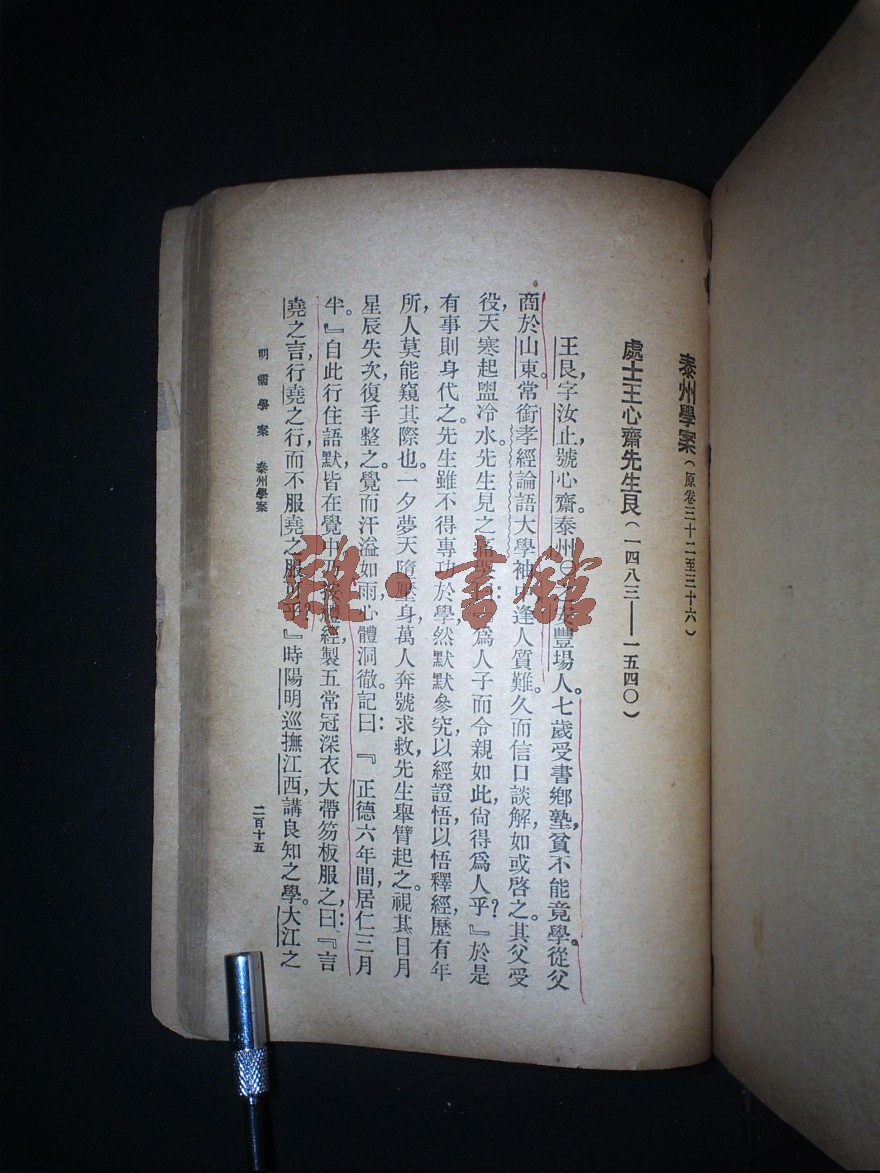 泰州學案(原卷三十二至三十六)
處士王心齋先生艮(一四八三——一五四〇)
王艮,字汝止,號心齋。泰州㊀之安豐場人。七歲受書鄉塾,貧不能竟學。從父
商於山東。常銜孝經論語大學袖中,逢人質難。久而信口談解,如或啓之。其父受
役,天寒起盥冷水。先生見之痛哭曰:『爲人子而令親如此,尙得爲人乎?』於是
有事則身代之。先生雖不得專功於學,然默默參究,以經證悟,以悟釋經,歷有年
所,人莫能窺其際也。一夕夢天墮壓身,萬人奔號求救,先生舉臂起之。視其日月
星辰失次,復手整之。覺而汗溢如雨,心體洞徹。記曰:『正德六年間,居仁三月
半。』自此行住語默,皆在覺中。乃按禮經,製五常冠深衣大帶笏板服之。曰:『言
堯之言,行堯之行,而不服堯之服可乎?』時陽明巡撫江西,講良知之學。大江之
明儒學案 泰州學案
二百十五
雜·書館